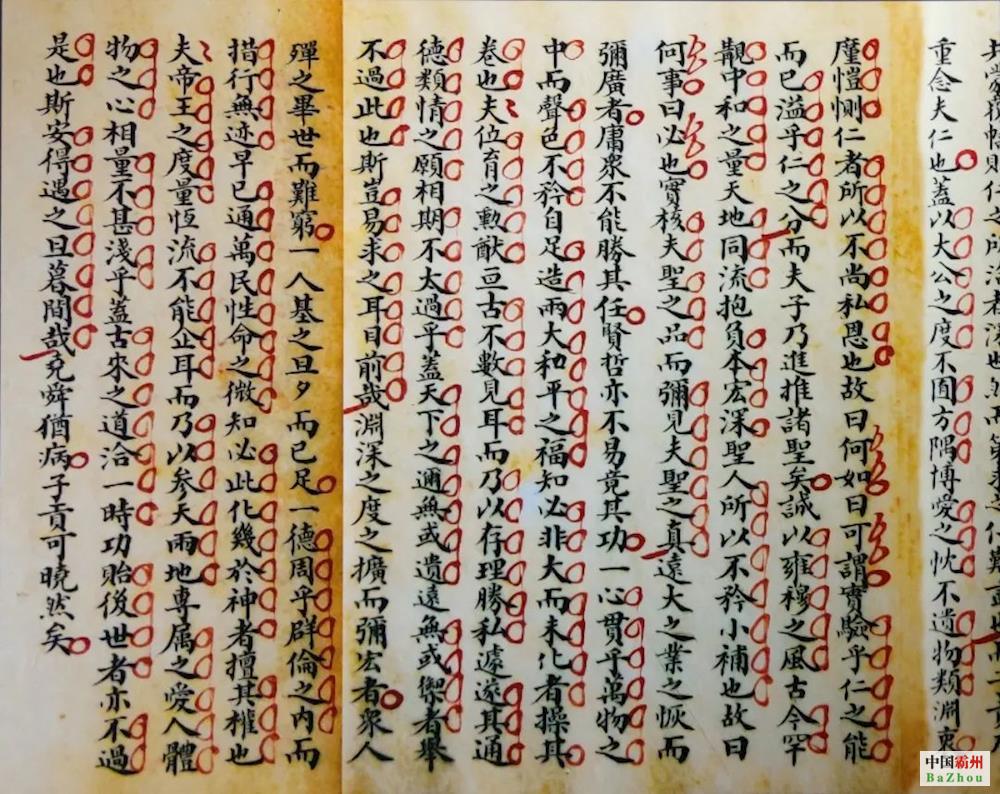 重念夫仁也蓋以大公之度不囿方隅博愛之忱不遺物類淵衷
廑愷惻仁者所以不尚私恩也故曰何如曰可謂實驗乎仁之能
而已溢乎仁之分而夫子乃進推諸聖矣誠以雍穆之風古今罕
覯中和之量天地同流抱負本宏深聖人所以不矜小補也故曰
何事曰必也實核夫聖之品而彌見夫聖之真遠大之業之恢而
彌廣者庸衆不能勝其任賢哲亦不易竟其功一心貫乎萬物之
中而聲色不矜自足造兩大和平之福知必非大而未化者操其
卷也夫位育之勳猷亘古不數見耳而乃以存理勝私遽遂其通
德類情之願相期不太過乎蓋天下之邇無或遺遠無或禦者舉
不過此也斯豈易求之耳目前哉淵深之度之擴而彌宏者衆人
殫之畢世而難窮一人基之旦夕而已足一德周乎群倫之内而
措行無迹早已通萬民性命之微知必此化幾於神者擅其權也
夫帝王之度量恆流不能企耳而乃以參天兩地專属之愛人體
物之心相量不甚淺乎蓋古來之道洽一時功貽後世者亦不過
是也斯安得遇之旦暮間哉堯舜猶病子貢可曉然矣
中国霸州
BaZhou